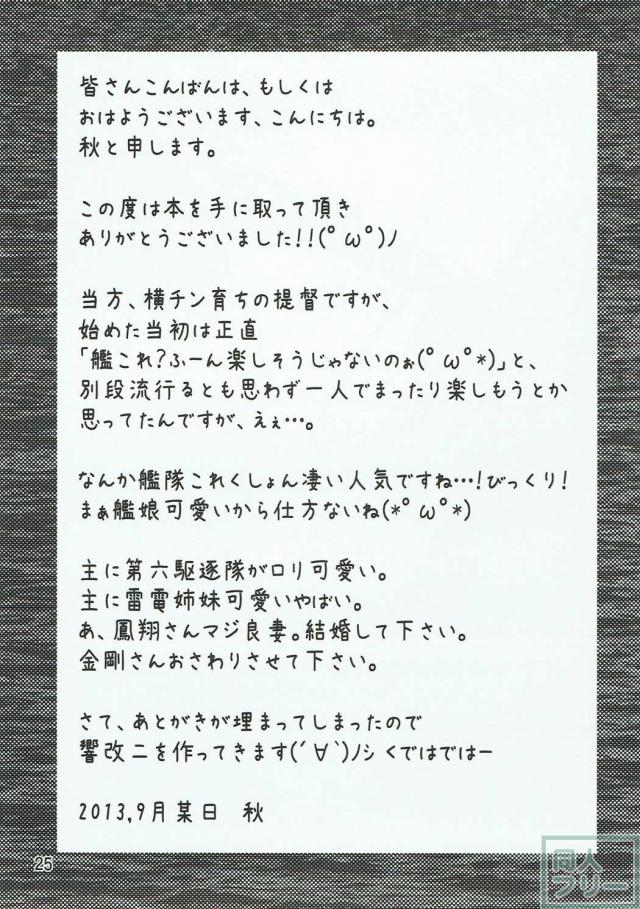 皆さんこんばんは、もしくは
おはようございます、こんにちは。
秋と申します。
この度は本を手に取って頂き
ありがとうございました!!(ﾟωﾟ)ノ
当方、横チン育ちの提督ですが、
始めた当初は正直
「艦これ?ふーん楽しそうじゃないのぉ(ﾟωﾟ*)」と、
別段流行るとも思わず一人でまったり楽しもうとか
思ってたんですが、えぇ…。
なんか艦隊これくしょん凄い人気ですね…!びっくり!
まぁ艦娘可愛いから仕方ないね(*ﾟωﾟ*)
主に第六駆逐隊がロリ可愛い。
主に雷電姉妹可愛いやばい。
あ、鳳翔さんマジ良妻。結婚して下さい。
金剛さんおさわりさせて下さい。
さて、あとがきが埋まってしまったので
響改二を作ってきます(´∀`)ノシくではではー
2013,9月某日　秋
25
同人
フリー